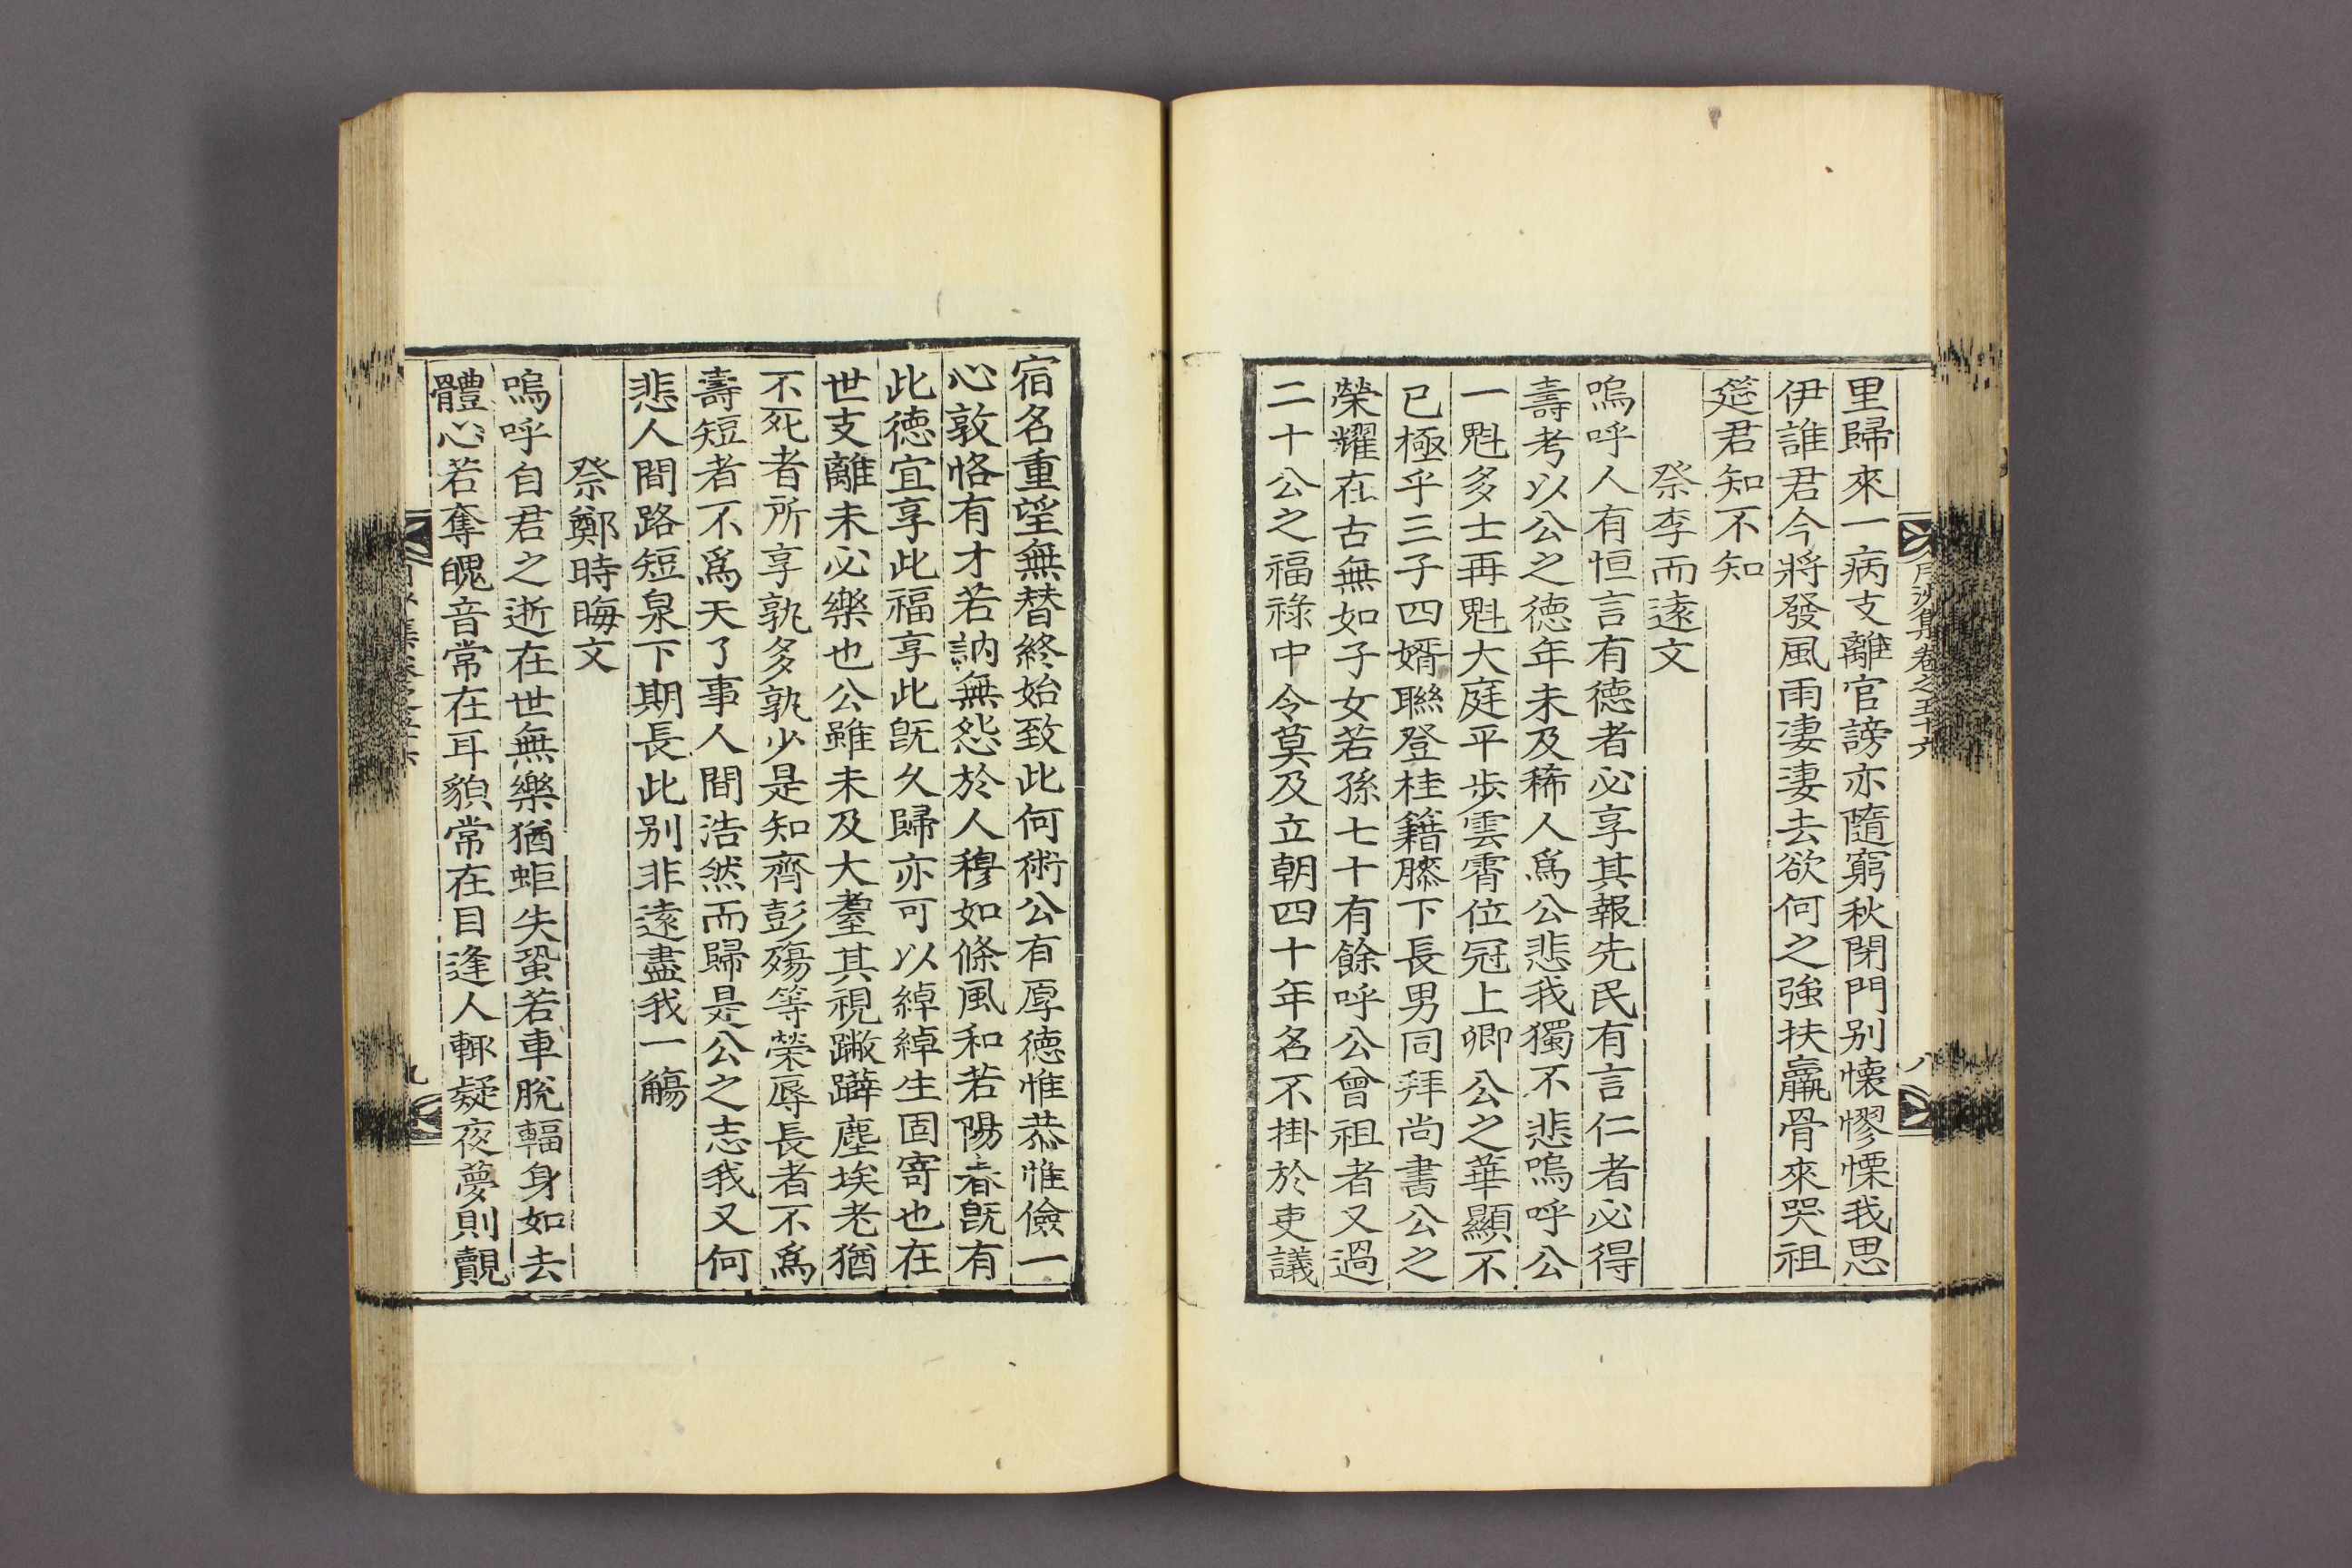 月沙集卷之五十六
八
里歸來一病支離官謗亦隨窮秋閉門別懷憀慄我思
伊誰君今將發風雨凄凄去欲何之強扶羸骨來哭祖
筵君知不知
祭李而遠文
嗚呼人有恒言有德者必享其報先民有言仁者必得
壽考以公之德年未及稀人爲公悲我獨不悲嗚呼公
一魁多士再魁大庭平步雲霄位冠上卿公之華顯不
已極乎三子四婿聯登桂籍膝下長男同拜尚書公之
榮耀在古無如子女若孫七十有餘呼公曾祖者又過
二十公之福祿中令莫及立朝四十年名不掛於吏議
宿名重望無替終始致此何術公有厚德惟恭惟儉一
心敦恪有才若訥無怨於人穆如條風和若陽春旣有
此德宜享此福享此旣久歸亦可以綽綽生固寄也在
世支離未必樂也公雖未及大耋其視蹩躠塵埃老猶
不死者所享孰多孰少是知齊彭殤等榮辱長者不爲
壽短者不爲夭了事人間浩然而歸是公之志我又何
悲人間路短泉下期長此別非遠盡我一觴
祭鄭時晦文
嗚呼自君之逝在世無樂猶蚷失蛩若車脫輻身如去
體心若奪魄音常在耳貌常在目逢人輒疑夜夢則覿
九